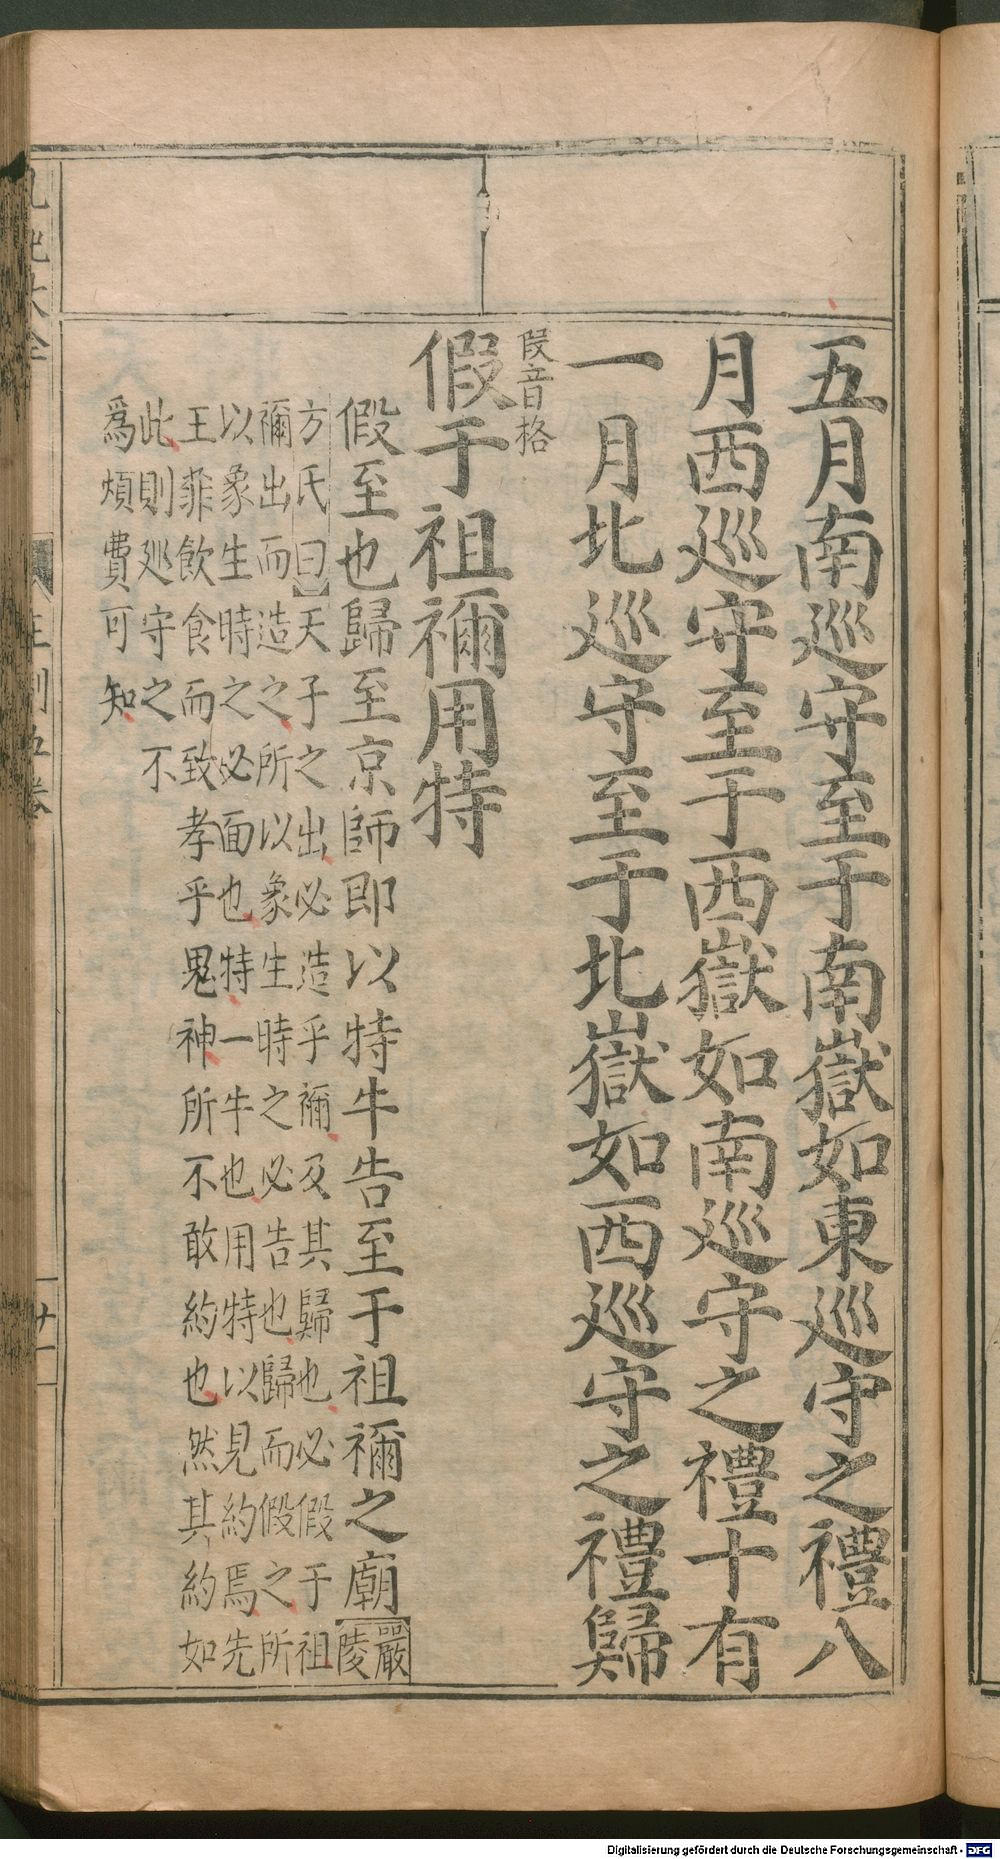 五月南巡守至于南嶽如東巡守之禮八
月西巡守至于西嶽如南巡守之禮十有
一月北巡守至于北嶽如西巡守之禮歸
假音格
假于祖禰用特
假至也歸至京師即以特牛告至于祖禰之廟嚴陵
方氏曰天子之出必造乎禰及其歸也必假于祖
禰出而造之所以象生時之必告也歸而假之所
以象生時之必面也特一牛也用特以見約焉先
王非飲食而致孝乎鬼神所不敢約也然其約如
此則巡守之不
為煩費可知
Digitalisierung gefördert durch die Deutsche Forschungsgemeinschaft - DFG